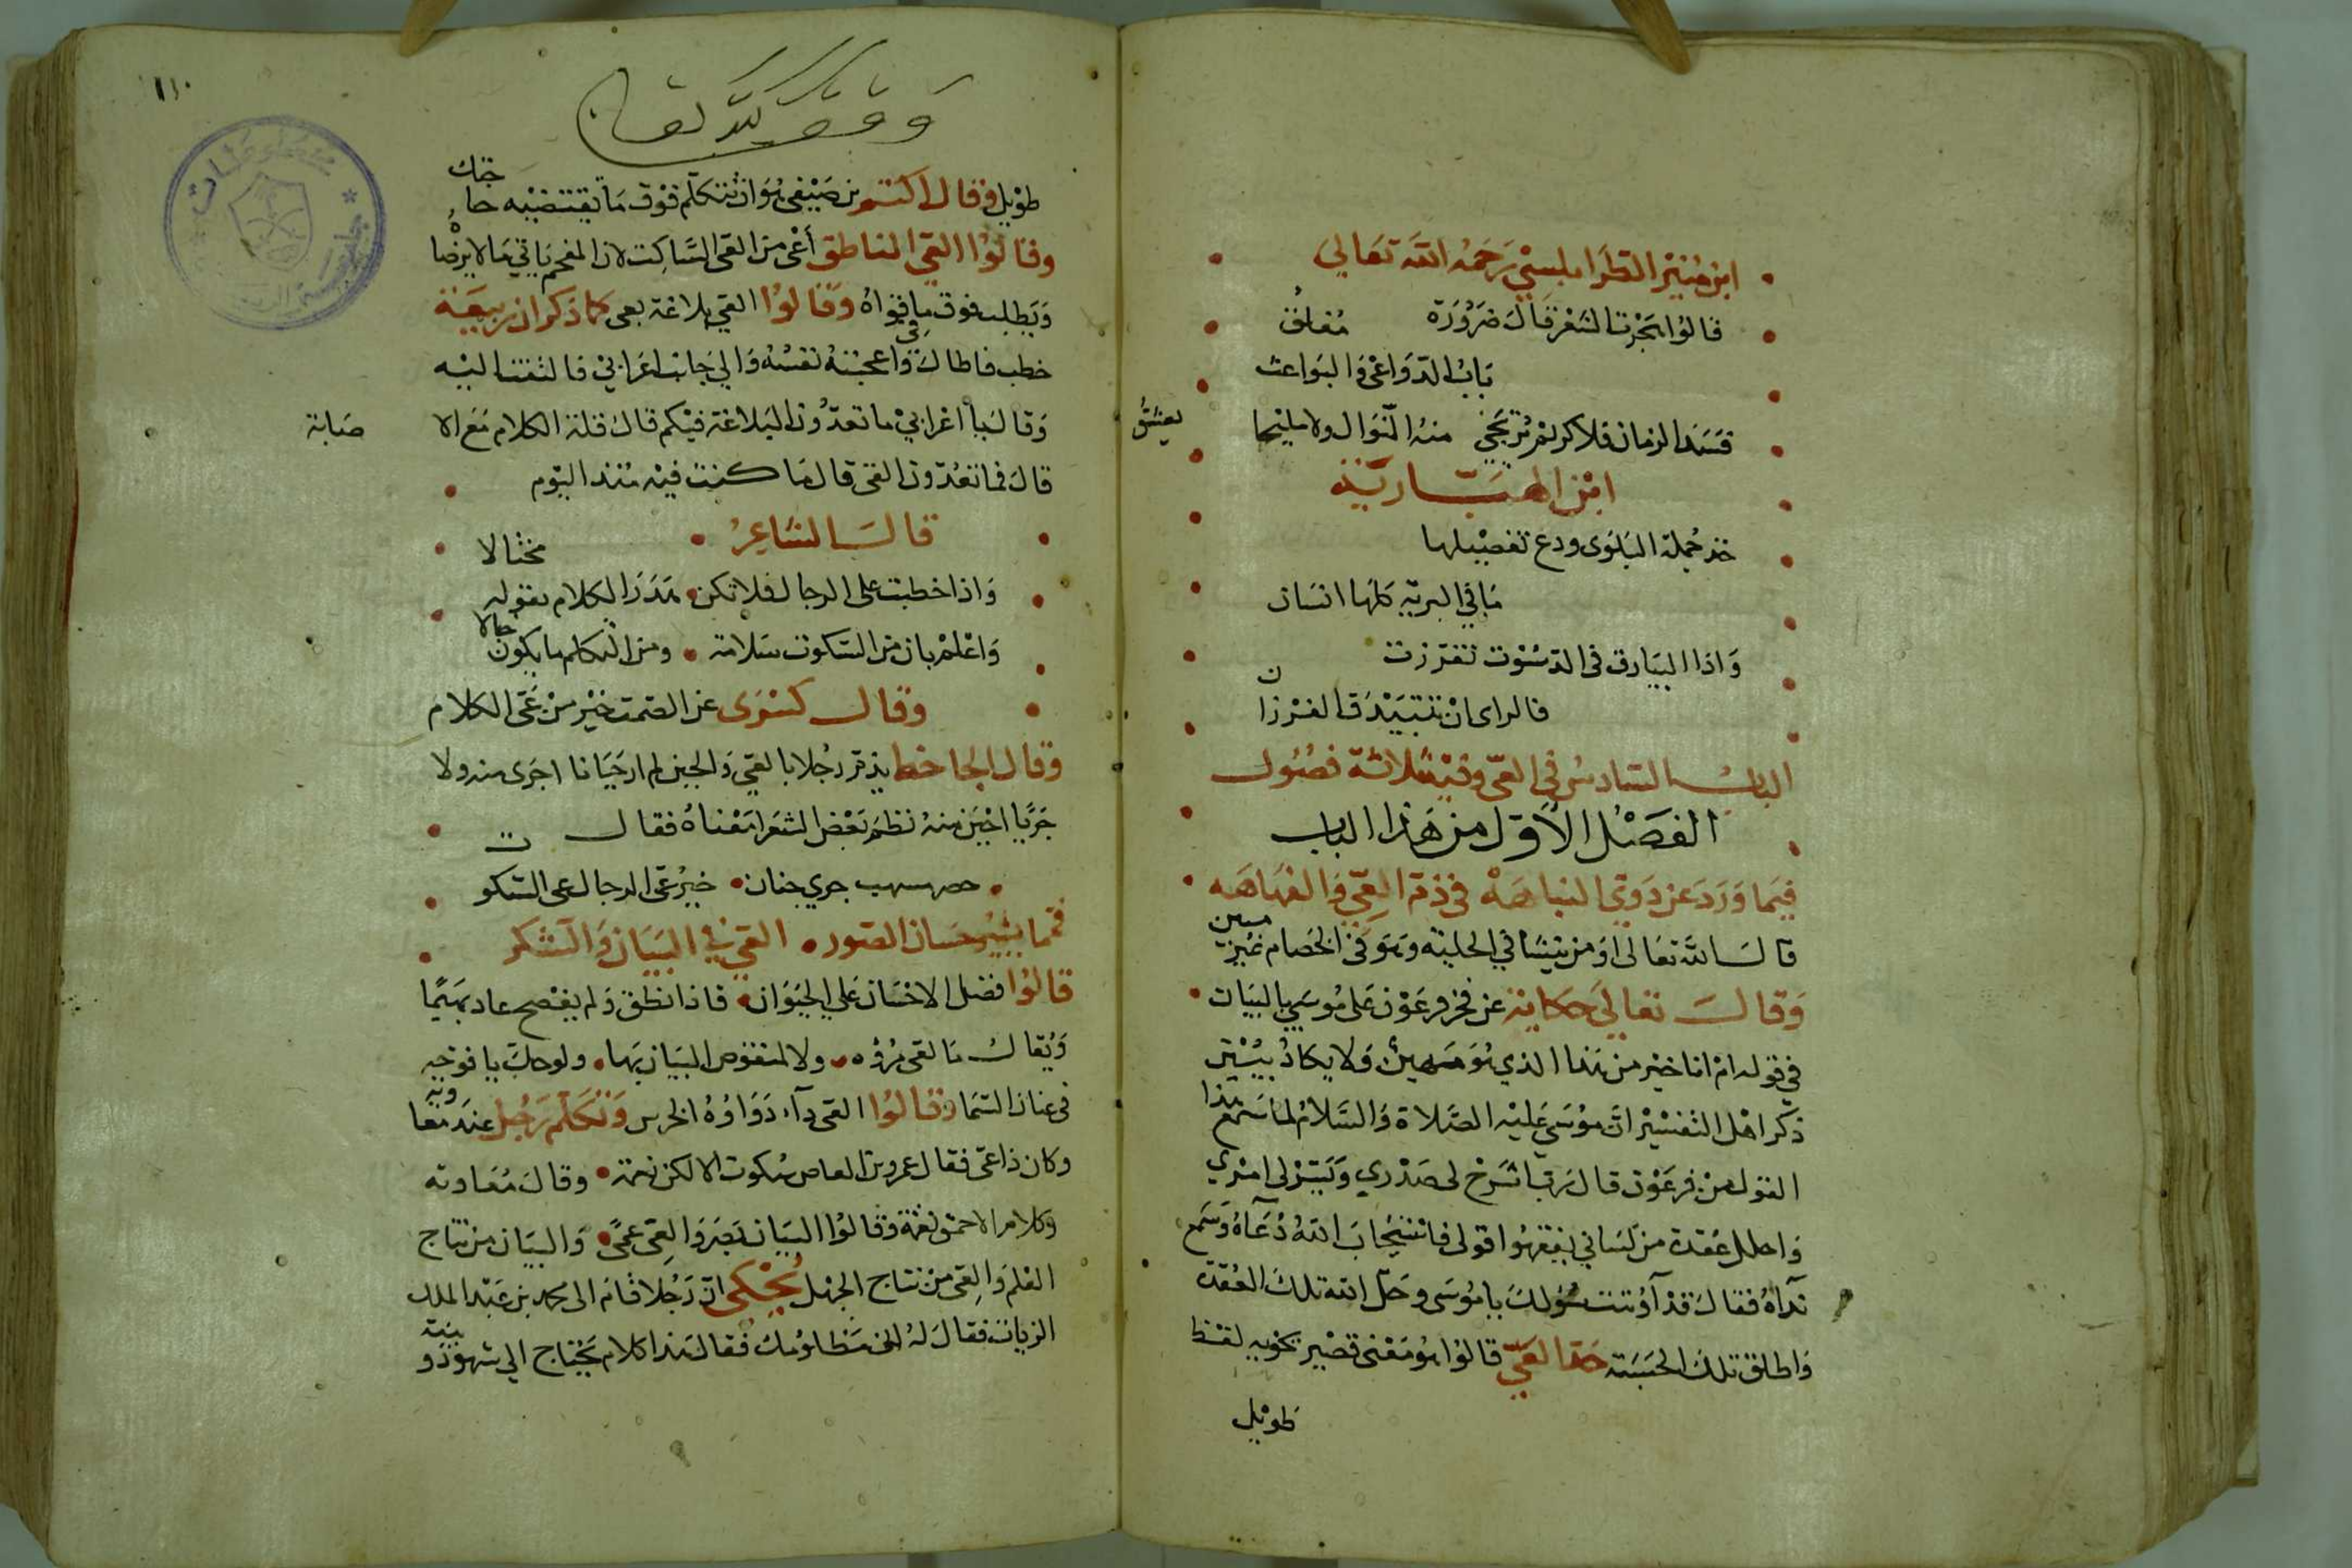 ابن منير الطرابلسي رحمه الله تعالى
قالوا هجرت الشعر قال ضرورة مغلق
باب الدواعي والبواعث
فسد الزمان فلا كريم يرتجى منه النوال ولا مليحا يعشق
ابن الهبارية
خذ جملة البلوى ودع تفصيلها
ما في البرية كلها انسان
واذا البيادق في الدسوت تفرزت
فالراى ان تتبيدق الفرزان
الباب السادس في العي وفيه ثلاثة فصول
الفصل الاول من هذا الباب
فيما ورد عن ذوي النباهه في ذم العي والفهاهه
قال الله تعالى اومن ينشا في الحلية وهو في الخصام غير مبين
وقال تعالى حكاية عن فخر فرعون على موسى بالبيان
في قوله ام انا خير من هذا الذي هو مهين ولا يكاد يبين
ذكر اهل التفسير ان موسى عليه الصلاة والسلام لما سمع هذا
القول من فرعون قال رب اشرح لي صدري ويسر لي امري
واحلل عقدة من لساني يفقهوا قولي فاستجاب الله دعاه وسمع
نداه فقال قد اوتيت سؤلك يا موسى وحل الله تلك العقدة
واطلق تلك الحبسة حد العي قالوا هو معنى قصير يحويه لفظ
طويل
١١٠
وقف لله تعالى
طويل وقال اكثم بن صيفي هو ان تتكلم فوق ما تقتضيه حاجتك
وقالوا العي الناطق أعى من العي الساكت لان المفحم ياتي ما لا يرضاه
ويطلب فوق ما في قواه وقالوا العي بلاغة بعي كما ذكر ان ربيعة
خطب فاطال واعجبته نفسه والى جانبه اعرابي فالتفت اليه
وقال يا اعرابي ما تعدون البلاغة فيكم قال قلة الكلام مع الاصابة
قال فما تعدون العي قال ما كنت فيه منذ اليوم
قال الشاعر
واذا خطبت على الرجال فلا تكن هذر الكلام بقوله مختالا
واعلم بان من السكوت سلامة ومن التكلم ما يكون خبالا
وقال كسرى عي الصمت خير من عي الكلام
وقال الجاحظ يذم رجلا بالعي والجبن لم ار جبانا اجرى منه ولا
جريا اجبن منه نظم بعض الشعرا معناه فقال
حصر مسهب جري جبان خير عي الرجال عي السكوت
فمما يشين حسان الصور العي في البيان والتشكر
قالوا فضل الانسان على الحيوان فاذا نطق ولم يفصح عاد بهيما
ويقال ما لعي مروه ولا لمنقوص البيان بها ولو حك يا فوخه
في عنان السما وقالوا العي دآء دواؤه الخرس وتكلم رجل عند معاوية
وكان ذا عي فقال عمرو بن العاص سكوت الالكن نعمة وقال معاوية
وكلام الاحمق نقمة وقالوا البيان بصر والعي عمى والبيان من نتاج
العلم والعي من نتاج الجهل يحكى ان رجلا قام الى محمد بن عبد الملك
الزيات فقال له اني مظلومك فقال هذا كلام يحتاج الى شهود وبينة